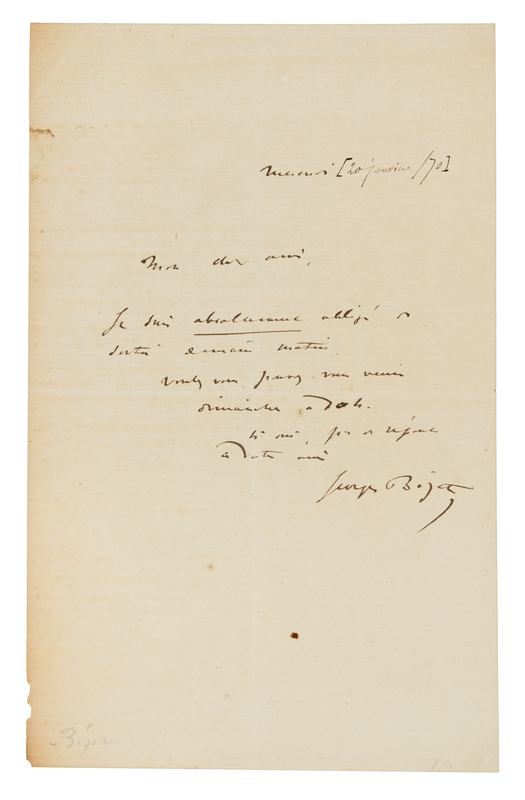 Mercredi [20 janvier /70]
Mon cher ami,
Je suis absolument obligé de
sortir demain matin.
Voulez vous, pouvez-vous venir
dimanche à
si oui, pas de réponse
à ami
Georges Bizet
Bizet